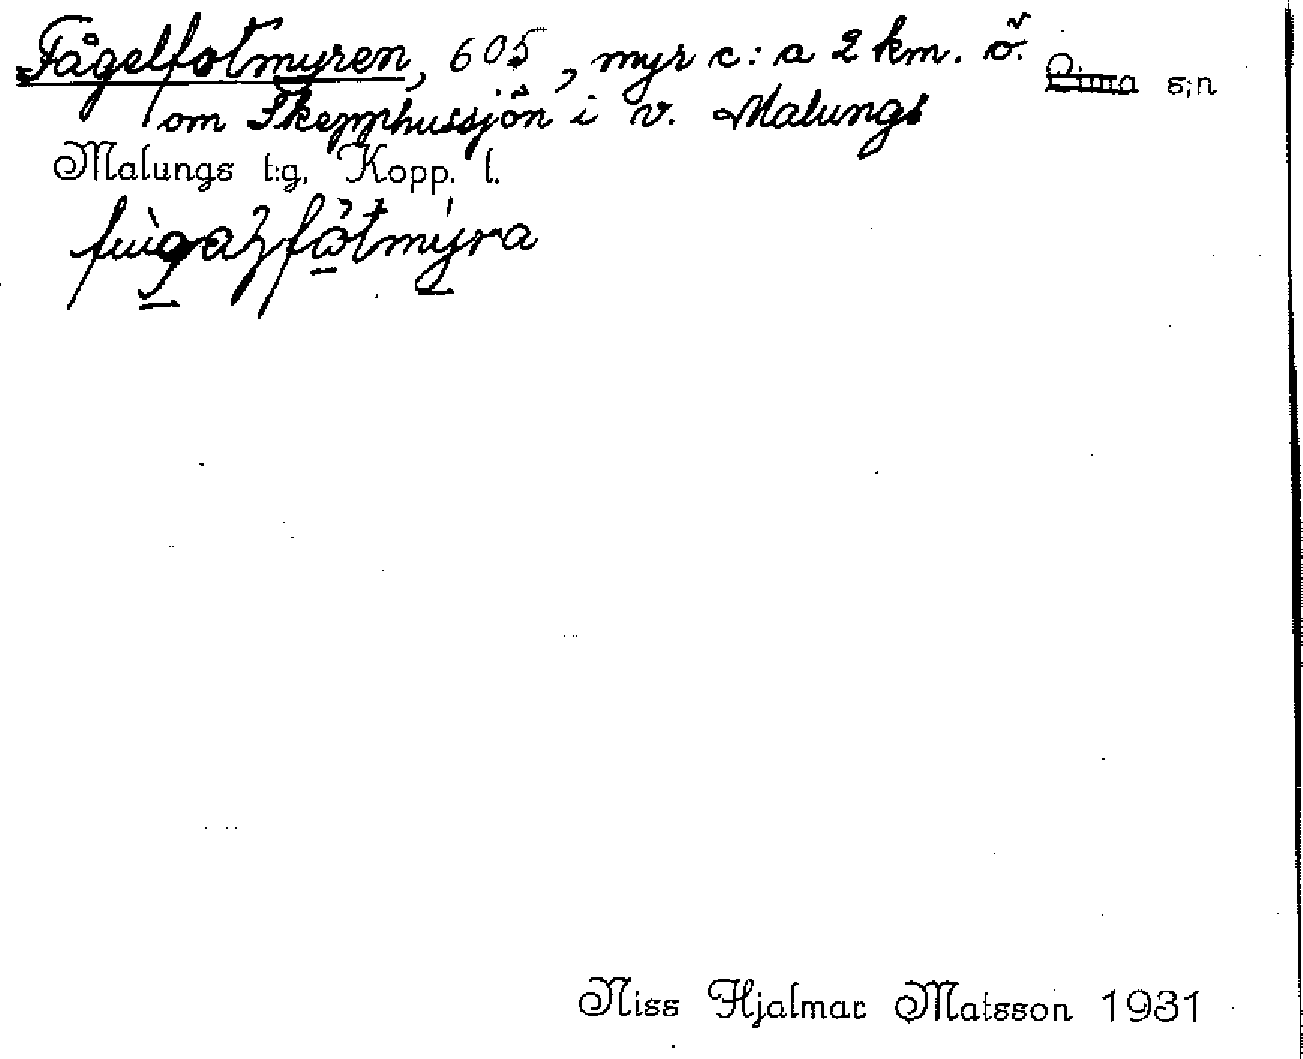 Fågelfotmyren, 605, myr c:a 2 km. ö. Lima s:n
om Skepphussjön i v. Malungs
Malungs t:g, Kopp. l.
Niss Hjalmar Matsson 1931